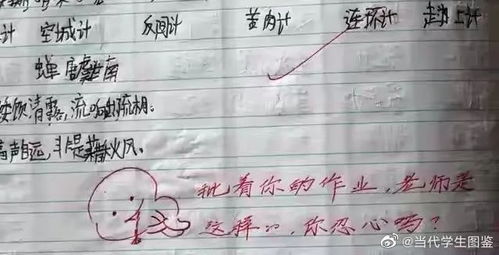 计 空城计 反间计 苦肉计 连环计 走为上计
蝉 虞世南
饮清露,流响疏桐。
声自远,非是藉秋风。
批着你的作业,老师是
这样的,你忍心吗?
@当代学生图鉴